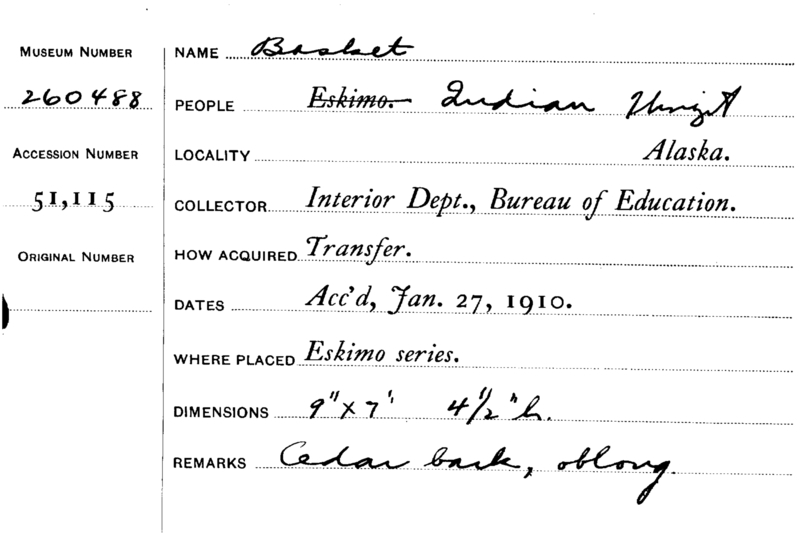 MUSEUM NUMBER
260488
ACCESSION NUMBER
51,115
ORIGINAL NUMBER
NAME Basket
PEOPLE Eskimo. Indian
LOCALITY Alaska.
COLLECTOR Interior Dept., Bureau of Education.
HOW ACQUIRED Transfer.
DATES Acc'd, Jan. 27, 1910.
WHERE PLACED Eskimo series.
DIMENSIONS 9" x 7' 4 1/2" h.
REMARKS Cedar bark, oblong.